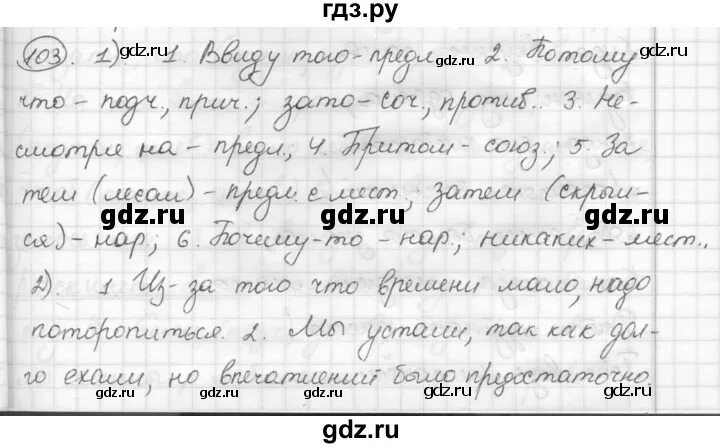 гдз.ру
103. 1) 1. Ввиду того - предл. 2. Потому
что - подч., прич.; зато - соч., против.. 3. Не-
смотря на - предл., 4. Притом - союз.; 5. За
тем (лесом) - предл. с мест.; затем (скрыл-
ся) - нар.; 6. Почему-то - нар.; никаких - мест..
2). 1. Из-за того что времени мало, надо
поторопиться. 2. Мы устали, так как дол-
го ехали, но впечатлений было предостаточно
gdz.ru gdz.ru gdz.ru
gdz.ru gdz.ru gdz.ru
gdz.ru gdz.ru gdz.ru
gdz.ru gdz.ru gdz.ru